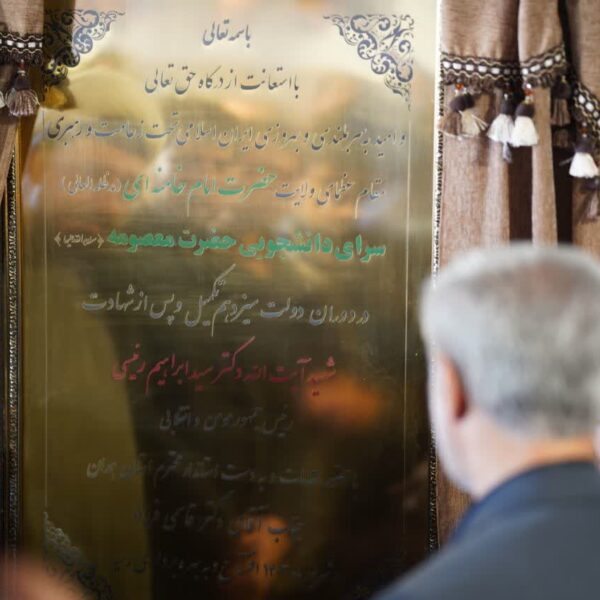 باسمه تعالی
با استعانت از درگاه حق تعالی
و امید به سربلندی و بهروزی ایران اسلامی تحت زعامت و رهبری
مقام عظمای ولایت حضرت امام خامنه ای (مدظله العالی)
سرای دانشجویی حضرت معصومه (سلام الله علیها)
در دوران دولت سیزدهم تکمیل و پس از شهادت
شهید آیت الله دکتر سید ابراهیم رئیسی
رئیس جمهور مومن و انقلابی
با حضور مقامات و به دست استاندار محترم استان تهران
جناب آقای دکتر